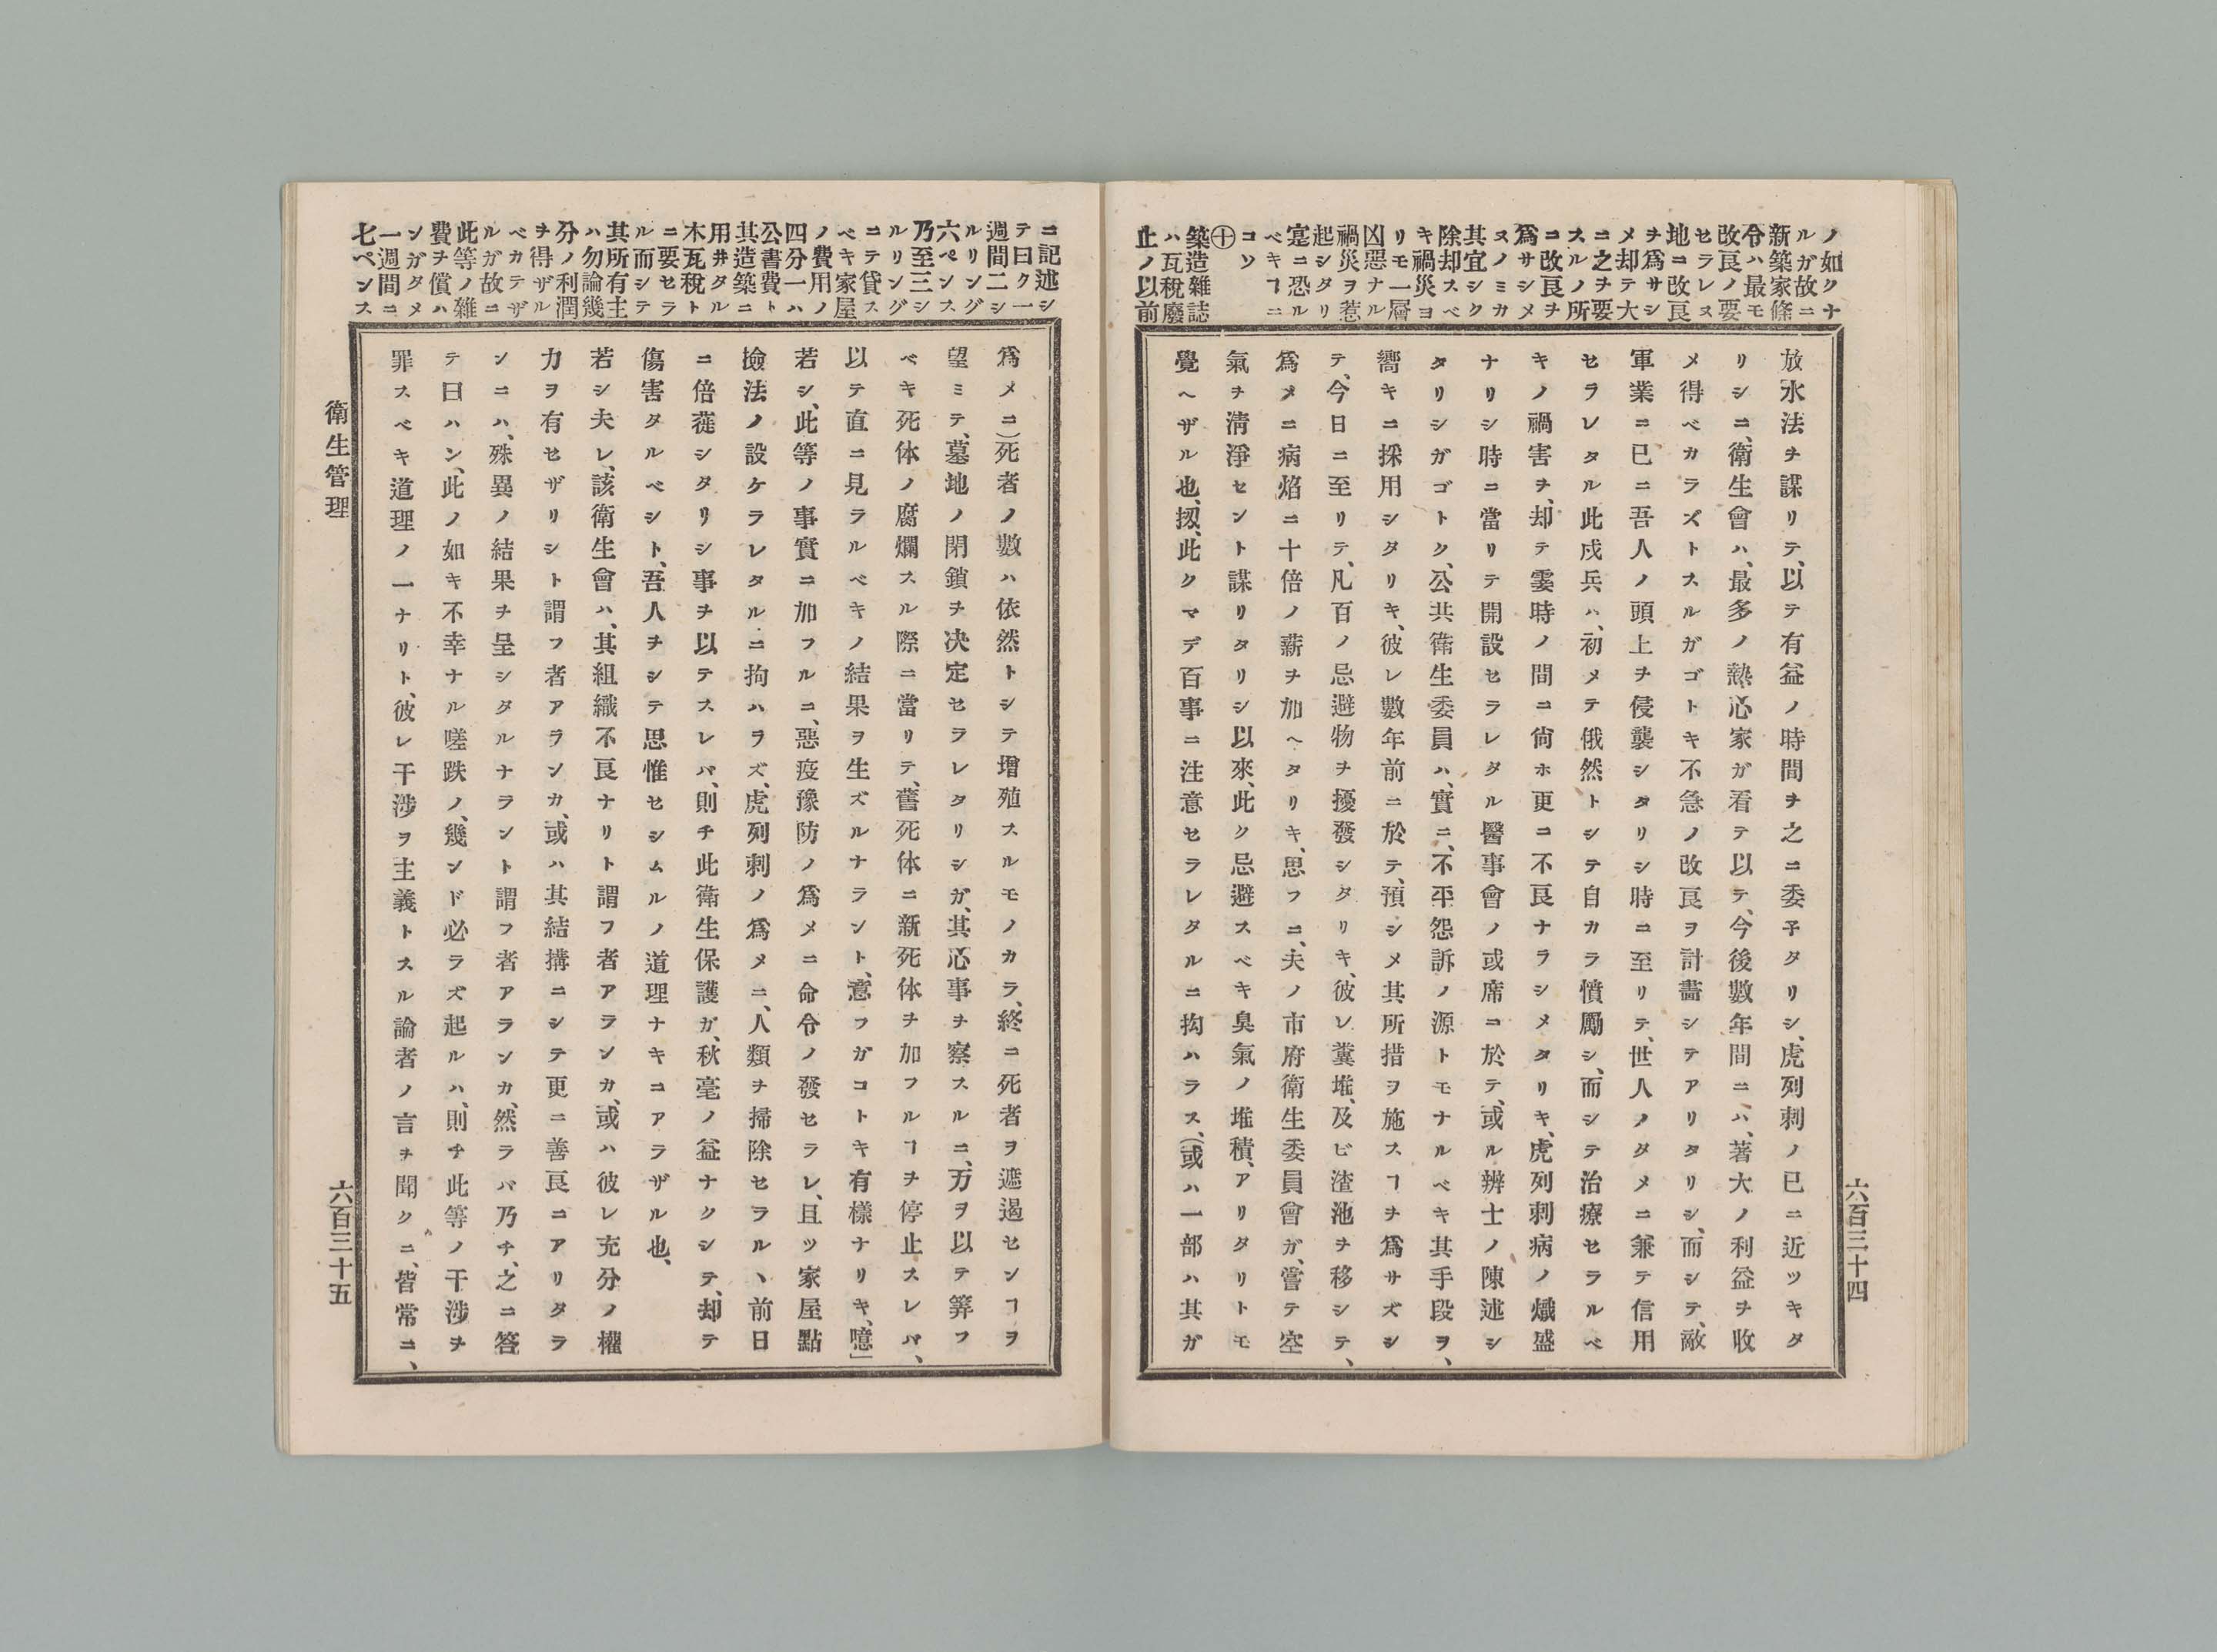 ノ如クナ
ルガ故ニ
新築家條
令ハ最モ
改良ノ要
セラレヌ
地ニ改良
ヲ爲サシ
メ却テ大
ニ之ヲ要
スルノ所
ニ改良ヲ
爲サシメ
ヌノミカ
其宜シク
除却スベ
キ禍災ヨ
リモ一層
凶惡ナル
禍災ヲ惹
起シタリ
寔ニ恐ル
ベキヿニ
コソ
㊉
築造雜誌
ハ瓦稅廢
止ノ以前
放水法ヲ謀リテ、以テ有益ノ時間ヲ之ニ委子タリシ、虎列刺ノ已ニ近ツキタ
リシニ、衛生會ハ、最多ノ熱心家ガ看テ以テ、今後數年間ニハ、著大ノ利益ヲ收
メ得ベカラズトスルガゴトキ不急ノ改良ヲ計畵シテアリタリシ、而シテ、敵
軍業ニ已ニ吾人ノ頭上ヲ侵襲シタリシ時ニ至リテ、世人ノタメニ兼テ信用
セラレタル此戍兵ハ、初メテ俄然トシテ自カラ憤勵シ、而シテ治療セラルベ
キノ禍害ヲ、却テ霎時ノ間ニ尙ホ更ニ不良ナラシメタリキ、虎列刺病ノ熾盛
ナリシ時ニ當リテ開設セラレタル醫事會ノ或席ニ於テ、或ル辨士ノ陳述シ
タリシガゴトク、公共衛生委員ハ、實ニ、不平怨訴ノ源トモナルベキ其手段ヲ、
嚮キニ採用シタリキ、彼レ數年前ニ於テ、預シメ其所措ヲ施スヿヲ爲サズシ
テ、今日ニ至リテ、凡百ノ忌避物ヲ擾發シタリキ、彼レ糞堆、及ビ渣池ヲ移シテ、
爲メニ病焰ニ十倍ノ薪ヲ加ヘタリキ、思フニ、夫ノ市府衛生委員會ガ、嘗テ空
氣ヲ淸淨セント謀リタリシ以來、此ク忌避スベキ臭氣ノ堆積、アリタリトモ
覺ヘザル也、扨、此クマデ百事ニ注意セラレタルニ抅ハラス、(或ハ一部ハ其ガ
六百三十四
ニ記述シ
テ曰ク一
週間二シ
ルリング
六ペンス
乃至三シ
ルリング
ニテ貸ス
ベキ家屋
ノ費用ノ
四分一ハ
公書費ト
其造築ニ
用井タル
木瓦稅ト
ニ要セラ
ル而シテ
其所有主
ハ勿論幾
分ノ利潤
ヲ得ザル
ベカテザ
ルガ故ニ
此等ノ雜
費ヲ償ハ
ンガタメ
一週間ニ
七ペンス
爲メニ)死者ノ數ハ依然トシテ增殖スルモノカラ、終ニ死者ヲ遮遏センヿヲ
望ミテ、墓地ノ閉鎖ヲ决定セラレタリシガ、其心事ヲ察スルニ、万ヲ以テ筭フ
ベキ死体ノ腐爛スル際ニ當リテ、舊死体ニ新死体ヲ加フルヿヲ停止スレバ、
以テ直ニ見ラルベキノ結果ヲ生ズルナラント、意フガコトキ有樣ナリキ、噫」
若シ、此等ノ事實ニ加フルニ、惡疫豫防ノ爲メニ命令ノ發セラレ、且ツ家屋點
撿法ノ設ケラレタルニ拘ハヲズ、虎列刺ノ爲メニ、人類ヲ掃除セラルヽ前日
ニ倍蓰シタリシ事ヲ以テスレバ、則チ此衛生保護ガ、秋毫ノ益ナクシテ、却テ
傷害タルベシト、吾人ヲシテ思惟セシムルノ道理ナキニアラザル也、
若シ夫レ、該衛生會ハ、其組織不良ナリト謂フ者アランカ、或ハ彼レ充分ノ權
力ヲ有セザリシト謂フ者アランカ、或ハ其結搆ニシテ更ニ善良ニアリタラ
ンニハ、殊異ノ結果ヲ呈シタルナラント謂フ者アランカ、然ラバ乃チ、之ニ答
テ曰ハン、此ノ如キ不幸ナル嗟跌ノ、幾ンド必ラズ起ルハ、則チ此等ノ干涉ヲ
罪スベキ道理ノ一ナリト、彼レ干涉ヲ主義トスル論者ノ言ヲ聞クニ、皆常ニ、
衛生管理
六百三十五